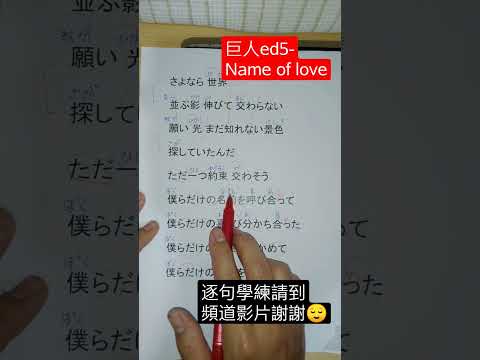 巨人ed5-
Name of love
さよなら 世界
並ぶ影 伸びて 交わらない
願い 光 まだ知れない景色
探していたんだ
ただ一つ約束 交わそう
僕らだけの名前を呼び合って
僕らだけの び分かち合った
僕らだけの かめて
僕らだけの を
逐句學練請到
頻道影片謝謝😌